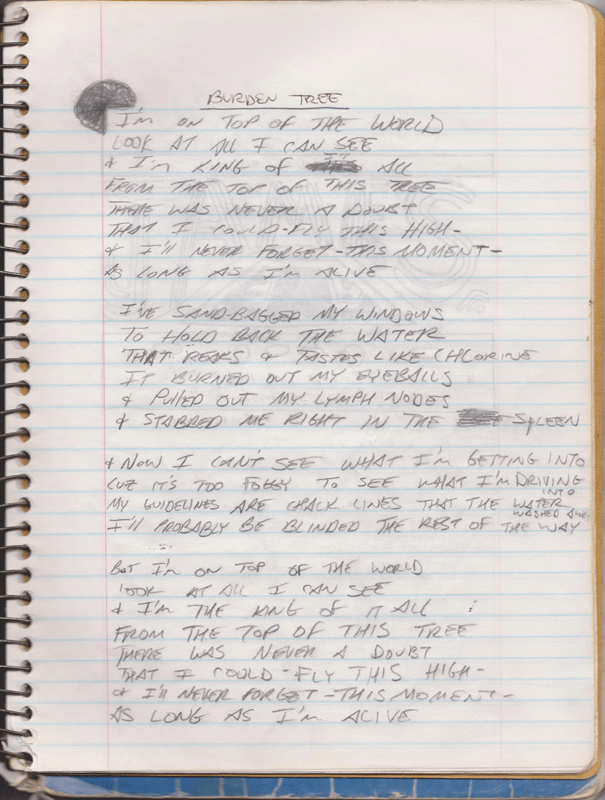 BURDEN TREE
I'M ON TOP OF THE WORLD
LOOK AT ALL I CAN SEE
& I'M KING OF ALL
FROM THE TOP OF THIS TREE
THERE WAS NEVER A DOUBT
THAT I COULD-FLY THIS HIGH-
& I'LL NEVER FORGET-THIS MOMENT-
AS LONG AS I'M ALIVE
I'VE SAND-BAGGED MY WINDOWS
TO HOLD BACK THE WATER
THAT REAKS & TASTES LIKE CHLORINE
IT BURNED OUT MY EYEBALLS
& PULLED OUT MY LYMPH NODES
& STABBED ME RIGHT IN THE SPLEEN
& NOW I CAN'T SEE WHAT I'M GETTING INTO
CUZ IT'S TOO FOGGY TO SEE WHAT I'M DRIVING INTO
MY GUIDELINES ARE CHALK LINES THAT THE WATER WASHED AWAY
I'LL PROBABLY BE BLINDED THE REST OF THE WAY
BUT I'M ON TOP OF THE WORLD
LOOK AT ALL I CAN SEE
& I'M THE KING OF IT ALL
FROM THE TOP OF THIS TREE
THERE WAS NEVER A DOUBT
THAT I COULD-FLY THIS HIGH-
& I'LL NEVER FORGET-THIS MOMENT-
AS LONG AS I'M ALIVE